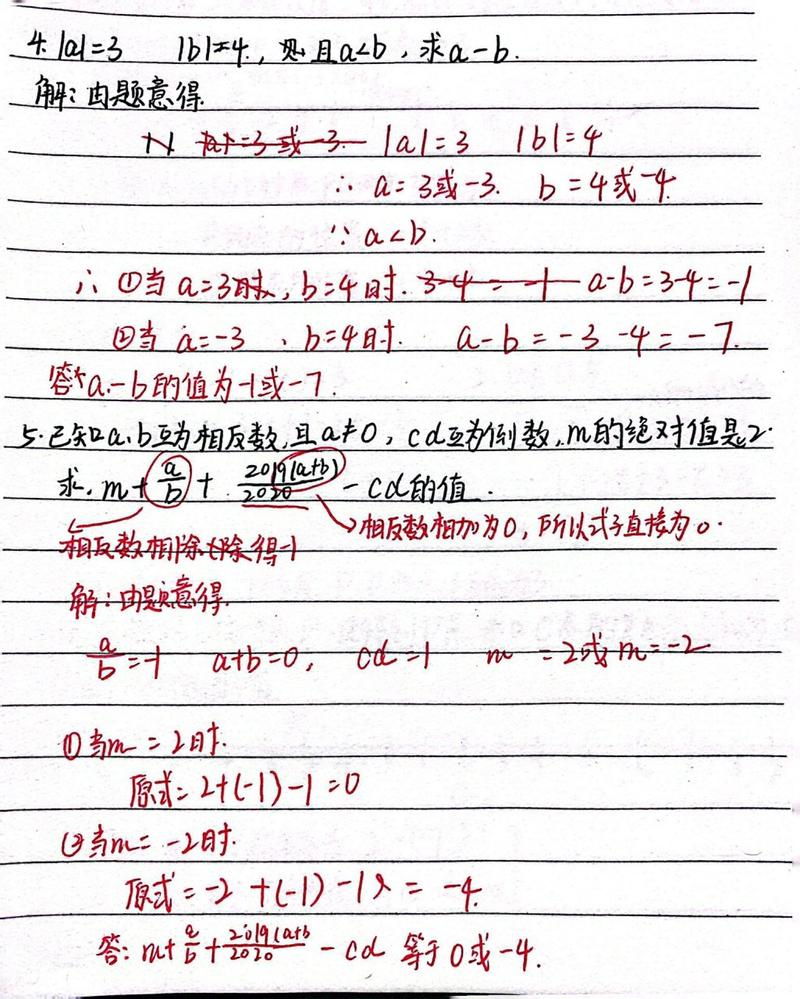 4. |a|=3 |b|=4., 且a<b, 求a-b.
解: 由题意得
|a|=3 |b|=4
∴ a=3或-3. b=4或-4.
∵ a<b.
∴ ①当a=3时, b=4时. 3-4=-1 a-b=3-4=-1
②当a=-3, b=4时. a-b=-3-4=-7.
答: a-b的值为-1或-7.
5.已知a、b互为相反数,且a≠0, cd互为倒数, m的绝对值是2.
求. m+a/b+2019(a+b)/2020-cd的值.
相反数相除得-1
相反数相加为0, 所以式子直接为0.
解: 由题意得.
a/b=-1 a+b=0, cd=1 m=2或m=-2
①当m=2时.
原式=2+(-1)-1=0
②当m=-2时.
原式=-2+(-1)-1=-4.
答: m+a/b+2019(a+b/2020-cd 等于0或-4.